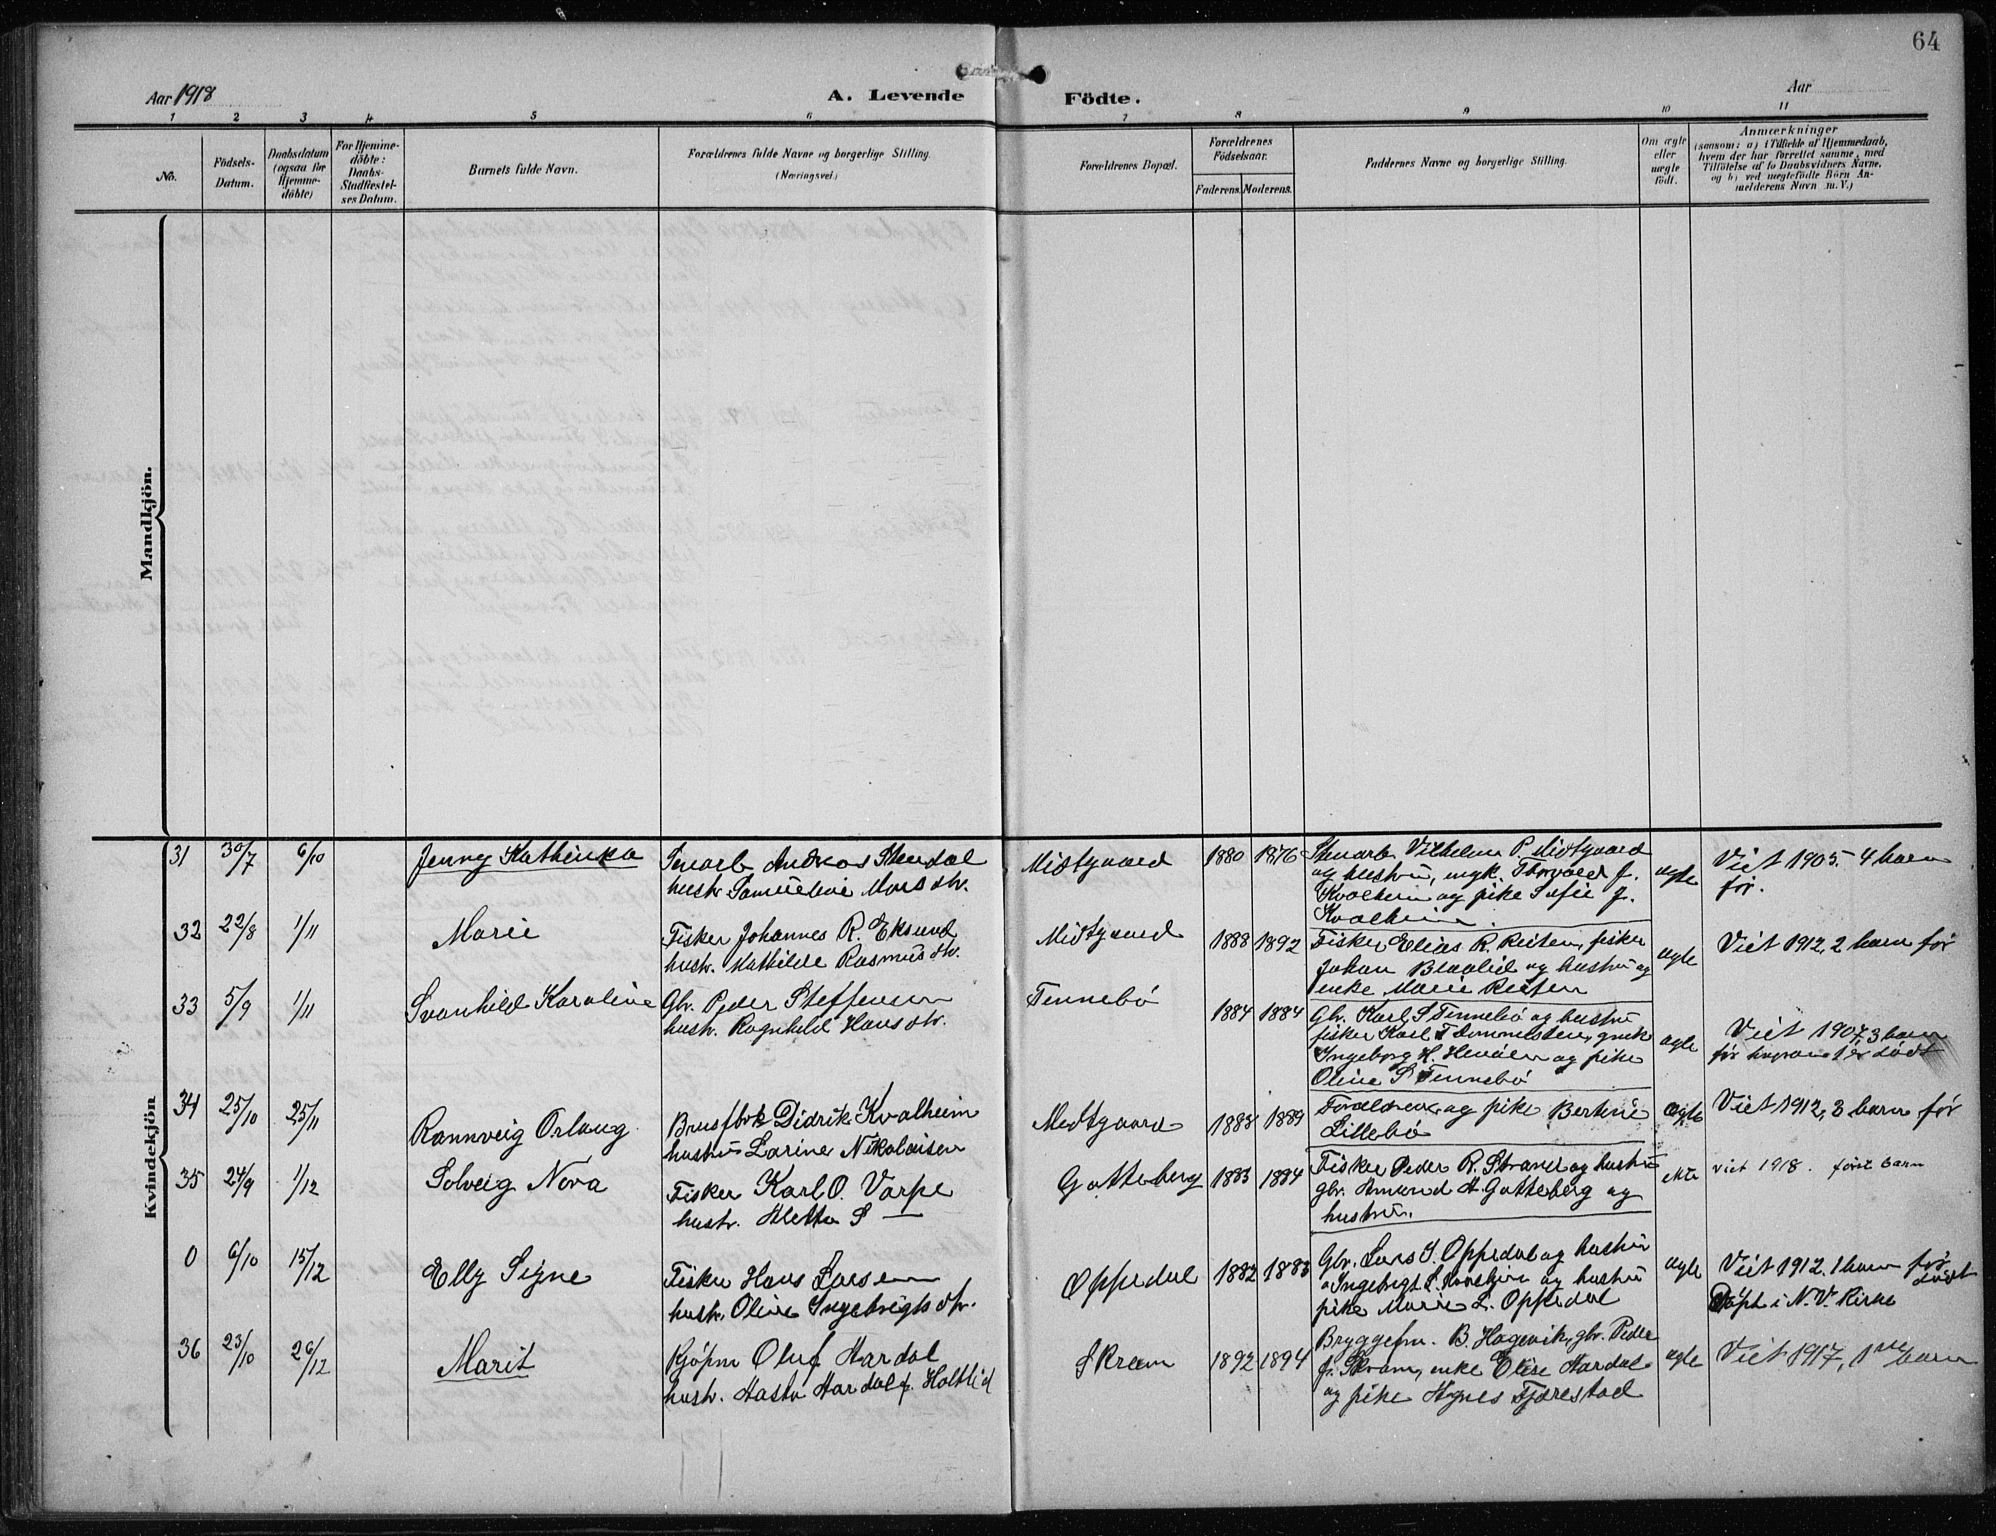 64
Aar 1918
A. Levende Födte.
Aar
1 2 3 4 5 6 7 8 9 10 11
No.
Födsels-
Datum.
Daabsdatum
(ogsaa for
Hjemme-
döbte)
For Hjemme-
döbte:
Daabs-
Stadfæstel-
ses Datum.
Barnets fulde Navn.
Forældrenes fulde Navne og borgerlige Stilling.
(Næringsvei.)
Forældrenes Bopæl.
Forældrenes
Födselsaar.
Faderens. Moderens.
Faddernes Navne og borgerlige Stilling.
Om ægte
eller
uægte
födt.
Anmærkninger
(saasom: a) i Tilfælde af Hjemmedaab,
hvem der har forrettet samme, med
Tilföielse af to Daabsvidners Navne,
og b) ved uægtefödte Börn An-
melderens Navn m. V.)
Mandkjön.
Kvindekjön
31 30/7 6/10 Jenny Kathinka
Andreas Stendal
hustr. Larsdtr.
Midtgaard 1880 1876
Vilhelm P. Midtgaard
og hustru, ungk. Thorvald J.
Kvalheim og pike Sofie J.
Kvalheim
ægte
Viet 1905. 4 barn
før.
32 22/8 1/11 Marie
Fisker Johannes R. Eksund
hustr. Mathilde Rasmusdtr.
Midtgaard 1888 1892
Fisker Elias R. Reiten, fisker
Johan Blaalid og hustru og
enke Marie Reiten
ægte
Viet 1912, 2 barn før
33 5/9 1/11 Svanhild Karoline
Gbr. Peder Steffensen
hustr. Ragnhild Hansdtr.
Tennebö 1884 1884
Gbr. Karl S Tennebö og hustru
fisker Karl
Ingeborg H. og pike
Oline S Tennebö
ægte
Viet 1907, 3 barn
før 1 er dödt
34 25/10 25/11 Rannveig Orlaug
Didrik Kvalheim
hustru Larine Nikolaisen
Midtgaard 1883 1889
Forældrene og pike Bertine
Lillebö
ægte
Viet 1912, 3 barn før
35 24/9 1/12 Solveig Nora
Fisker Karl O. Varpe
hustr. Kletta S —
Gotteberg 1883 1884
Fisker Peder R. og hustru
gbr. Amund A. Gotteberg og
hustru.
viet 1918. först barn
0 6/10 15/12 Elly Signe
Fisker Hans Larsen
hustr. Oline Ingebrigtsdtr.
Oppedal 1882 1883
Gbr. Lars J. Oppedal og hustru
Ingebrigt og hustru
pike Marie L. Oppedal
ægte
Viet 1912. 1 barn før
dødt
Döpt i N. V. Kirke
36 23/10 26/12 Marit
Kjöpm Oluf Hardal
hustr. Hasta Hardal f. Holtlid
Skram 1892 1894
Bryggefm. B. Hagevik, gbr. Peder
J. Skram, enke Elise Hardal
og pike Agnes Fjærestad
ægte
Viet 1917, 1ste barn